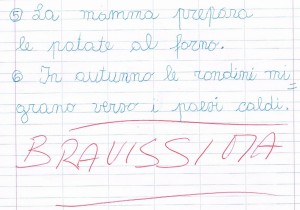 ⑤ La mamma prepara
le patate al forno.
⑥ In autunno le rondini mi=
grano verso i paesi caldi.
BRAVISSIMA